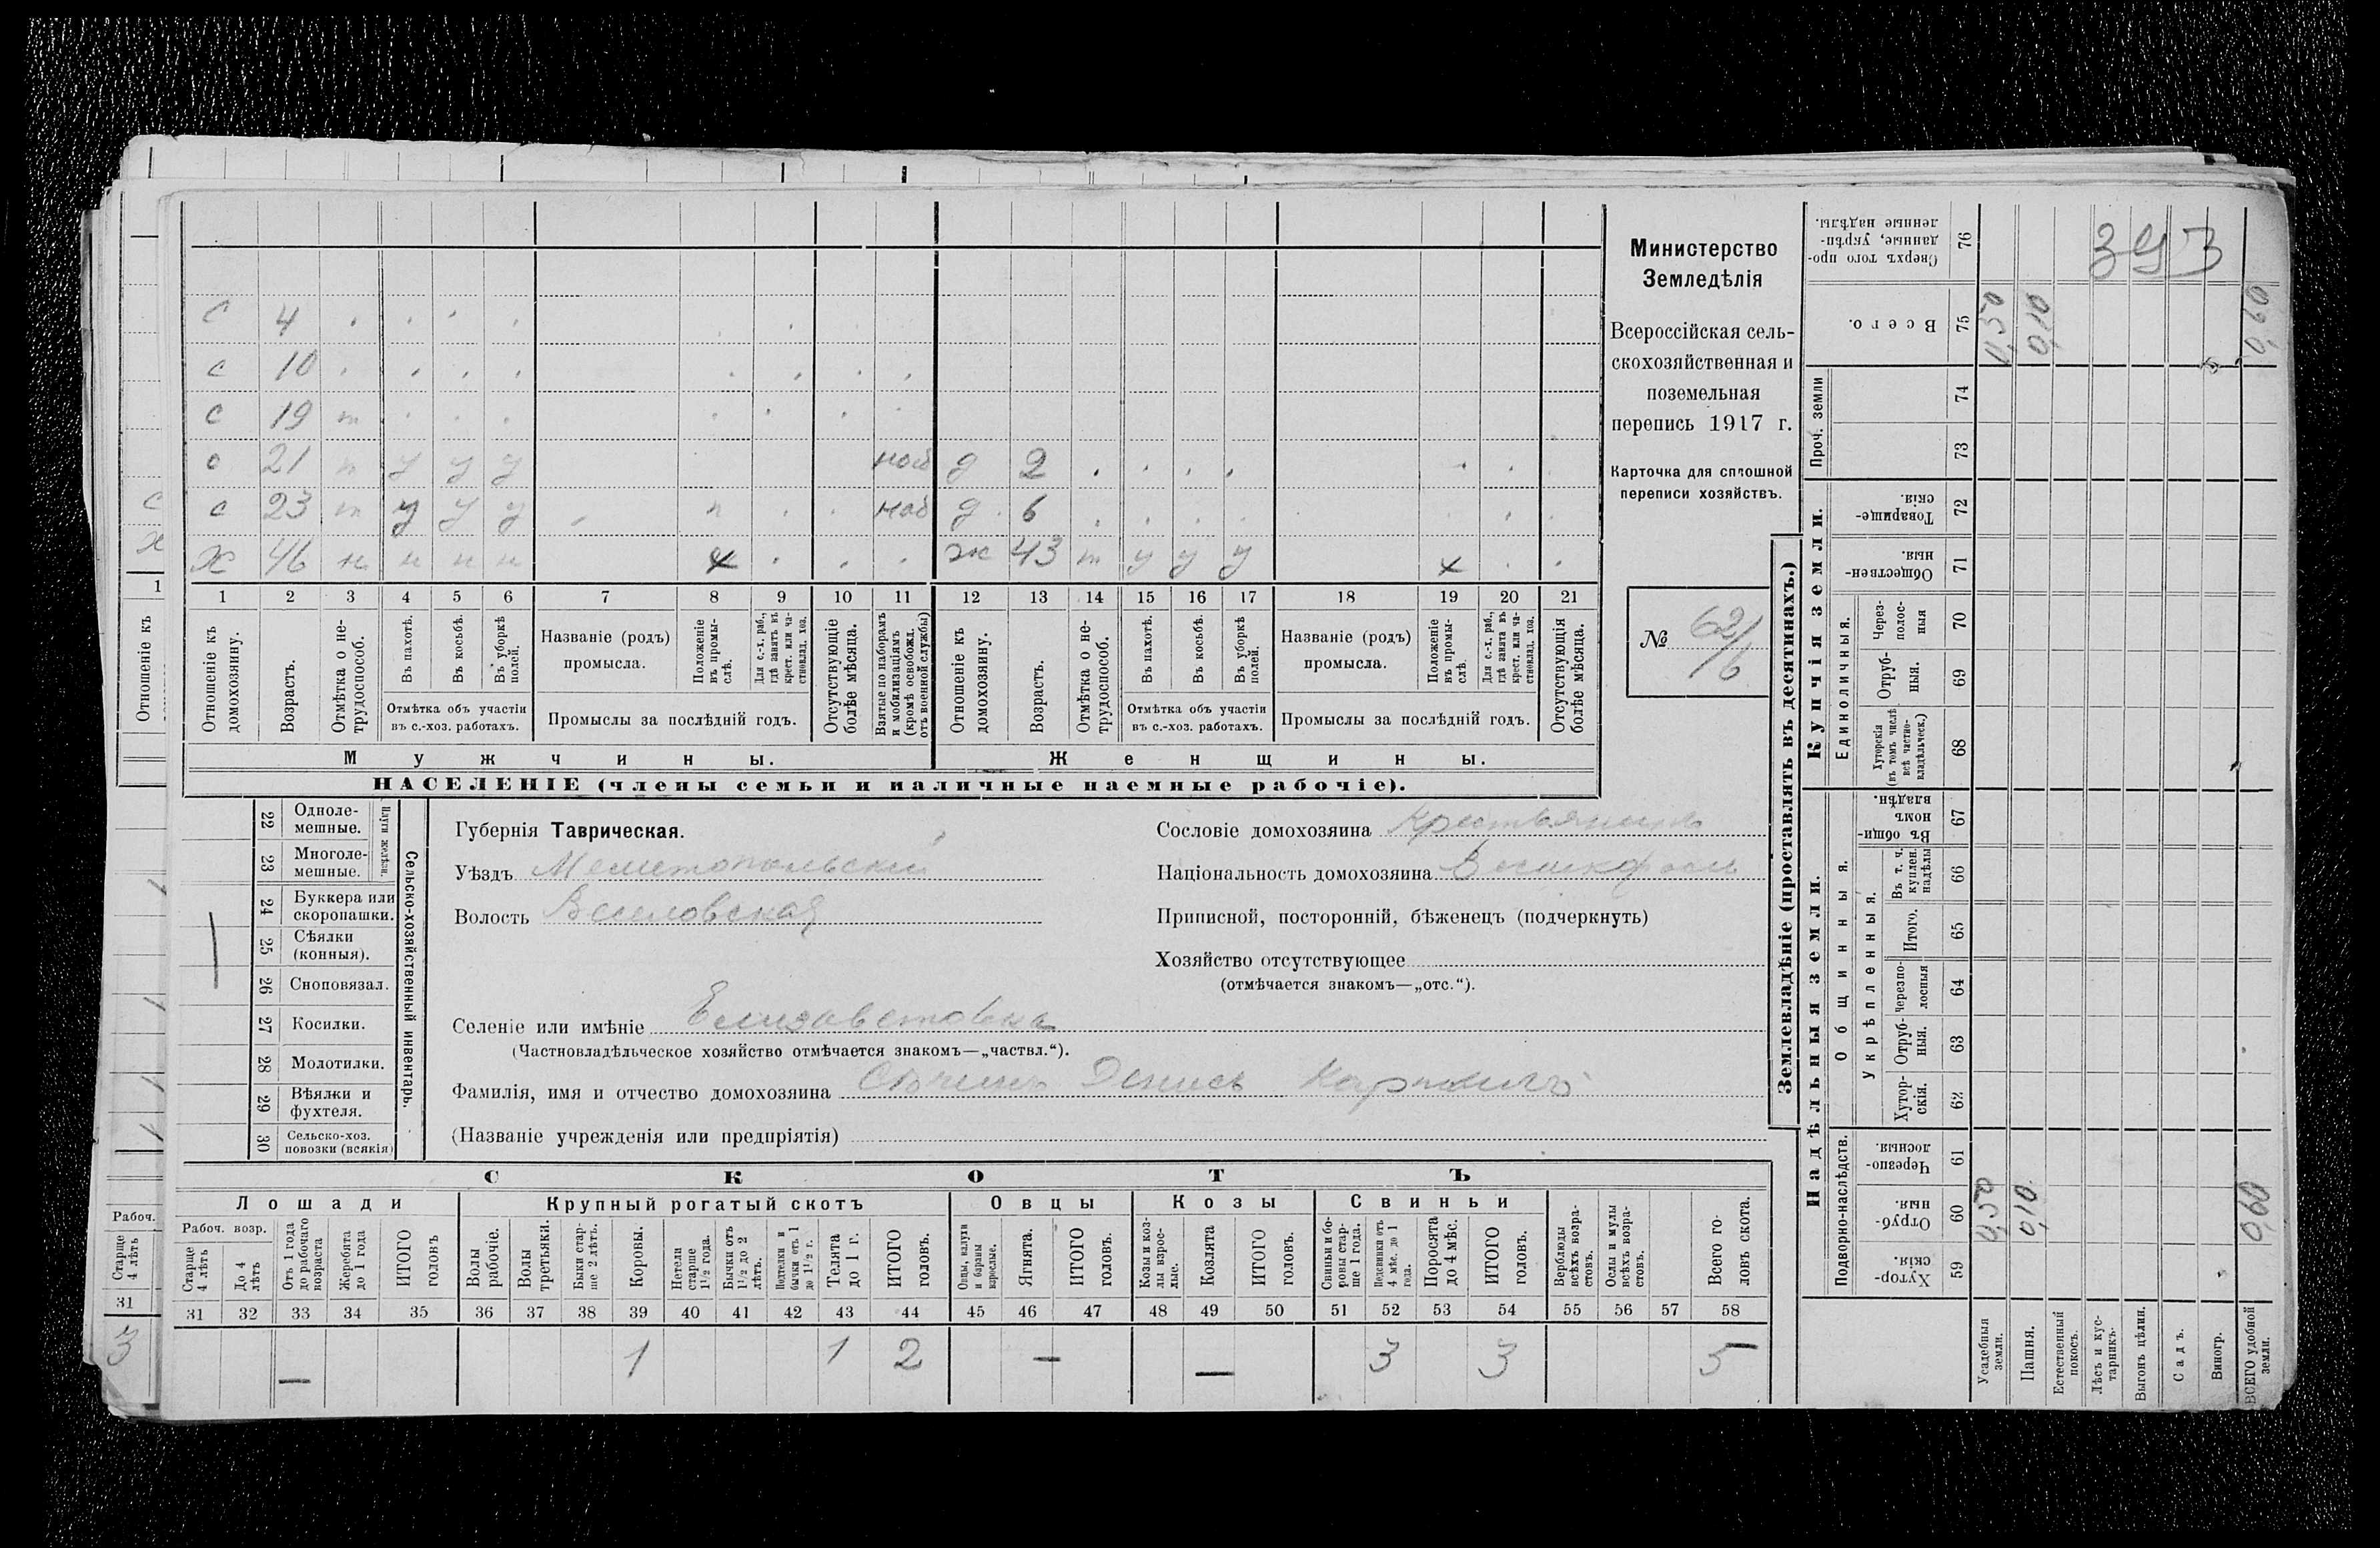 С 4
с 10
с 19 т
с 21 п у у у наб д 2
с 23 т у у у п наб д 6
Х 46 н н н н х ж 43 т у у у х
1 2 3 4 5 6 7 8 9 10 11 12 13 14 15 16 17 18 19 20 21
Отношеніе къ домохозяину.
Возрастъ.
Отмѣтка о не-трудоспособ.
Въ пахотѣ.
Въ косьбѣ.
Въ уборкѣ полей.
Отмѣтка объ участіи въ с.-хоз. работахъ.
Названіе (родъ) промысла.
Положеніе въ промы-слѣ.
Для с.-х. раб., гдѣ занятъ въ крест. или ча-стновлад. хоз.
Промыслы за послѣдній годъ.
Отсутствующіе болѣе мѣсяца.
Взятые по наборамъ и мобилизаціямъ (кромѣ освобожд. отъ военной службы)
Отношеніе къ домохозяину.
Возрастъ.
Отмѣтка о не-трудоспособ.
Въ пахотѣ.
Въ косьбѣ.
Въ уборкѣ полей.
Отмѣтка объ участіи въ с.-хоз. работахъ.
Названіе (родъ) промысла.
Положеніе въ промы-слѣ.
Для с.-х. раб., гдѣ занята въ крест. или ча-стновлад. хоз.
Промыслы за послѣдній годъ.
Отсутствующія болѣе мѣсяца.
Мужчины.
Женщины.
НАСЕЛЕНІЕ (члены семьи и наличные наемные рабочіе).
Министерство
Земледѣлія
Всероссійская сель-
скохозяйственная и
поземельная
перепись 1917 г.
Карточка для сплошной
переписи хозяйствъ.
№ 62/6
22 Одноле-мешные.
23 Многоле-мешные.
Плуги желѣзн.
24 Буккера или скоропашки.
25 Сѣялки (конныя).
26 Сноповязал.
27 Косилки.
28 Молотилки.
29 Вѣялки и фухтеля.
30 Сельско-хоз. повозки (всякія)
Сельско-хозяйственный инвентарь.
Губернія Таврическая.
Уѣздъ Мелитопольскій
Волость Веселовская
Сословіе домохозяина Крестьянинъ
Національность домохозяина Великороссъ
Приписной, посторонній, бѣженецъ (подчеркнуть)
Хозяйство отсутствующее
(отмѣчается знакомъ—„отс.“).
Селеніе или имѣніе Елизаветовка
(Частновладѣльческое хозяйство отмѣчается знакомъ—„частвл.“).
Фамилія, имя и отчество домохозяина Денисъ
(Названіе учрежденія или предпріятія)
СКОТЪ
Лошади
Крупный рогатый скотъ
Овцы
Козы
Свиньи
Рабоч. возр.
Старше 4 лѣтъ
До 4 лѣтъ
Отъ 1 года до рабочаго возраста
Жеребята до 1 года
ИТОГО головъ
Волы рабочіе.
Волы третьяки.
Быки стар-ше 2 лѣтъ.
Коровы.
Нетели старше 1½ года.
Бычки отъ 1½ до 2 лѣтъ.
Подтелки и бычки отъ 1 до 1½ г.
Телята до 1 г.
ИТОГО головъ.
Овцы, валухи и бараны взрослые.
Ягнята.
ИТОГО головъ.
Козы и коз-лы взрос-лые.
Козлята
ИТОГО головъ.
Свиньи и бо-ровы стар-ше 1 года.
Подсвинки отъ 4 мѣс. до 1 года.
Поросята до 4 мѣс.
ИТОГО головъ.
Верблюды всѣхъ возра-стовъ.
Ослы и мулы всѣхъ возра-стовъ.
Всего го-ловъ скота.
31 32 33 34 35 36 37 38 39 40 41 42 43 44 45 46 47 48 49 50 51 52 53 54 55 56 57 58
— 1 1 2 — — 3 3 5
Землевладѣніе (проставлять въ десятинахъ.)
Купчія земли.
Надѣльныя земли.
Сверхъ того про-данные, укрѣп-ленные надѣлы. 76
393
Всего. 75 0,50 0,10 0,60
Проч. земли 74 73
Товарище-скія. 72
Обществен-ныя. 71
Единоличныя.
Через-полос-ныя 70
Отруб-ныя. 69
Хуторскія (въ томъ числѣ всѣ частно-владѣльческ.) 68
Общинныя.
Въ общин-номъ владѣн. 67
Укрѣпленныя.
Въ т. ч. куплен. надѣлы 66
Итого. 65
Черезпо-лосныя 64
Отруб-ныя. 63
Хутор-скія. 62
Подворно-наслѣдств.
Черезпо-лосныя. 61
Отруб-ныя. 60 0,50 0,10 0,60
Хутор-скія. 59
Усадебныя земли.
Пашня.
Естественный покосъ.
Лѣсъ и кус-тарникъ.
Выгонъ цѣлин.
Садъ.
Виногр.
ВСЕГО удобной земли.
С
Х
1
Отношеніе къ
Рабоч.
Старше 4 лѣтъ
31
3